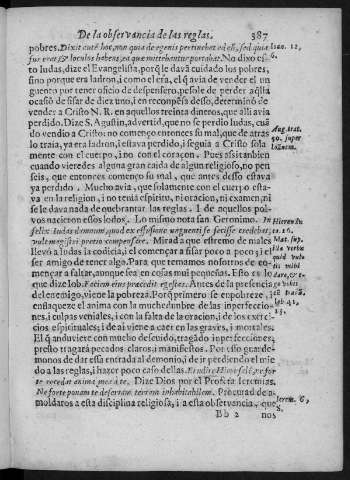 De la observancia de las reglas. 387
pobres. Dixit autē hoc, non quia de egenis pertinebat ad eū, sed quia
fur erat, & loculos habens, ea quæ mittebantur portabat. No dixo es-
to Iudas, dize el Evangelista, porq̃ le dava cuidado los pobres,
sino porque era ladron, i como el era, el q̃ avia de vender el un
guento por tener oficio de despensero, pesole de perder aq̃lla
ocasiō de sisar de diez uno, i en recompēsa desso, determinò de
vender a Cristo N. R. en aquellos treinta dineros, que alli avia
perdido. Dize S. Agustin, advertid, que no se perdio Iudas, cuā
do vendio a Cristo: no començo entonces su mal, que de atras
lo traia, ya era ladron, i estava perdido, i seguia a Cristo sola
mente con el cuerpo, i no con el coraçon. Pues assi tanbien
cuando vieredes alguna gran caida de algun religioso, no pen
seis, que entonces començo su mal, que antes desso estava
ya perdido. Mucho avia, que solamente con el cuerpo esta-
va en la religion, i no tenia espiritu, ni oracion, ni examen, ni
se le dava nada de quebrantar las reglas. I de aquellos pol-
vos nacieron essos lodos. Lo mismo nota san Geronimo. In
felix Iudas damnum, quod ex effusione unguenti se fecisse credebat,
vult magistri pretio compensare. Mirad a que estremo de males
llevò a Iudas la codicia, el començar a sisar poco a poco; i el
ser amigo de tener algo. Para que temamos nosotros de co-
mençar a faltar, aunque sea en cosas mui pequeñas. Esto es lo
que dize Iob. Faciem eius præcedit egestas. Antes de la presencia
del enemigo, viene la pobreza. Porq̃ primero se enpobrece, i se
ensaqueze el anima con la muchedunbre de las inperfeccio-
nes, i culpas veniales, i con la falta de la oracion, i de los exerci-
cios espirituales; i de ai viene a caer en las graves, i mortales.
El q̃ anduviere con mucho descuido, tragādo inperfecciones,
presto tragará pecados claros; i manifiestos. Por esso grandes
monos de dar essa entrada al demonio, i de ir perdiendo el mie
do a las reglas, i hazer poco caso dellas. Erudire Hierusalē, ne for
te recedat anima mea à te. Dize Dios por el Profeta Ieremias.
Ne forte ponam te desertam, terram inhabitabilem. Procurad de a-
moldaros a esta disciplina religiosa, i a esta observancia, que
Bb 2 nos
Ioan. 12,
6.
Aug. trat.
50. super
Ioānem.
Hieron. su
Mat. sup.
illa verba
quid vul-
tis mihi
dare, & e-
Iob. 41,
13.
Ierem. 6,
8.